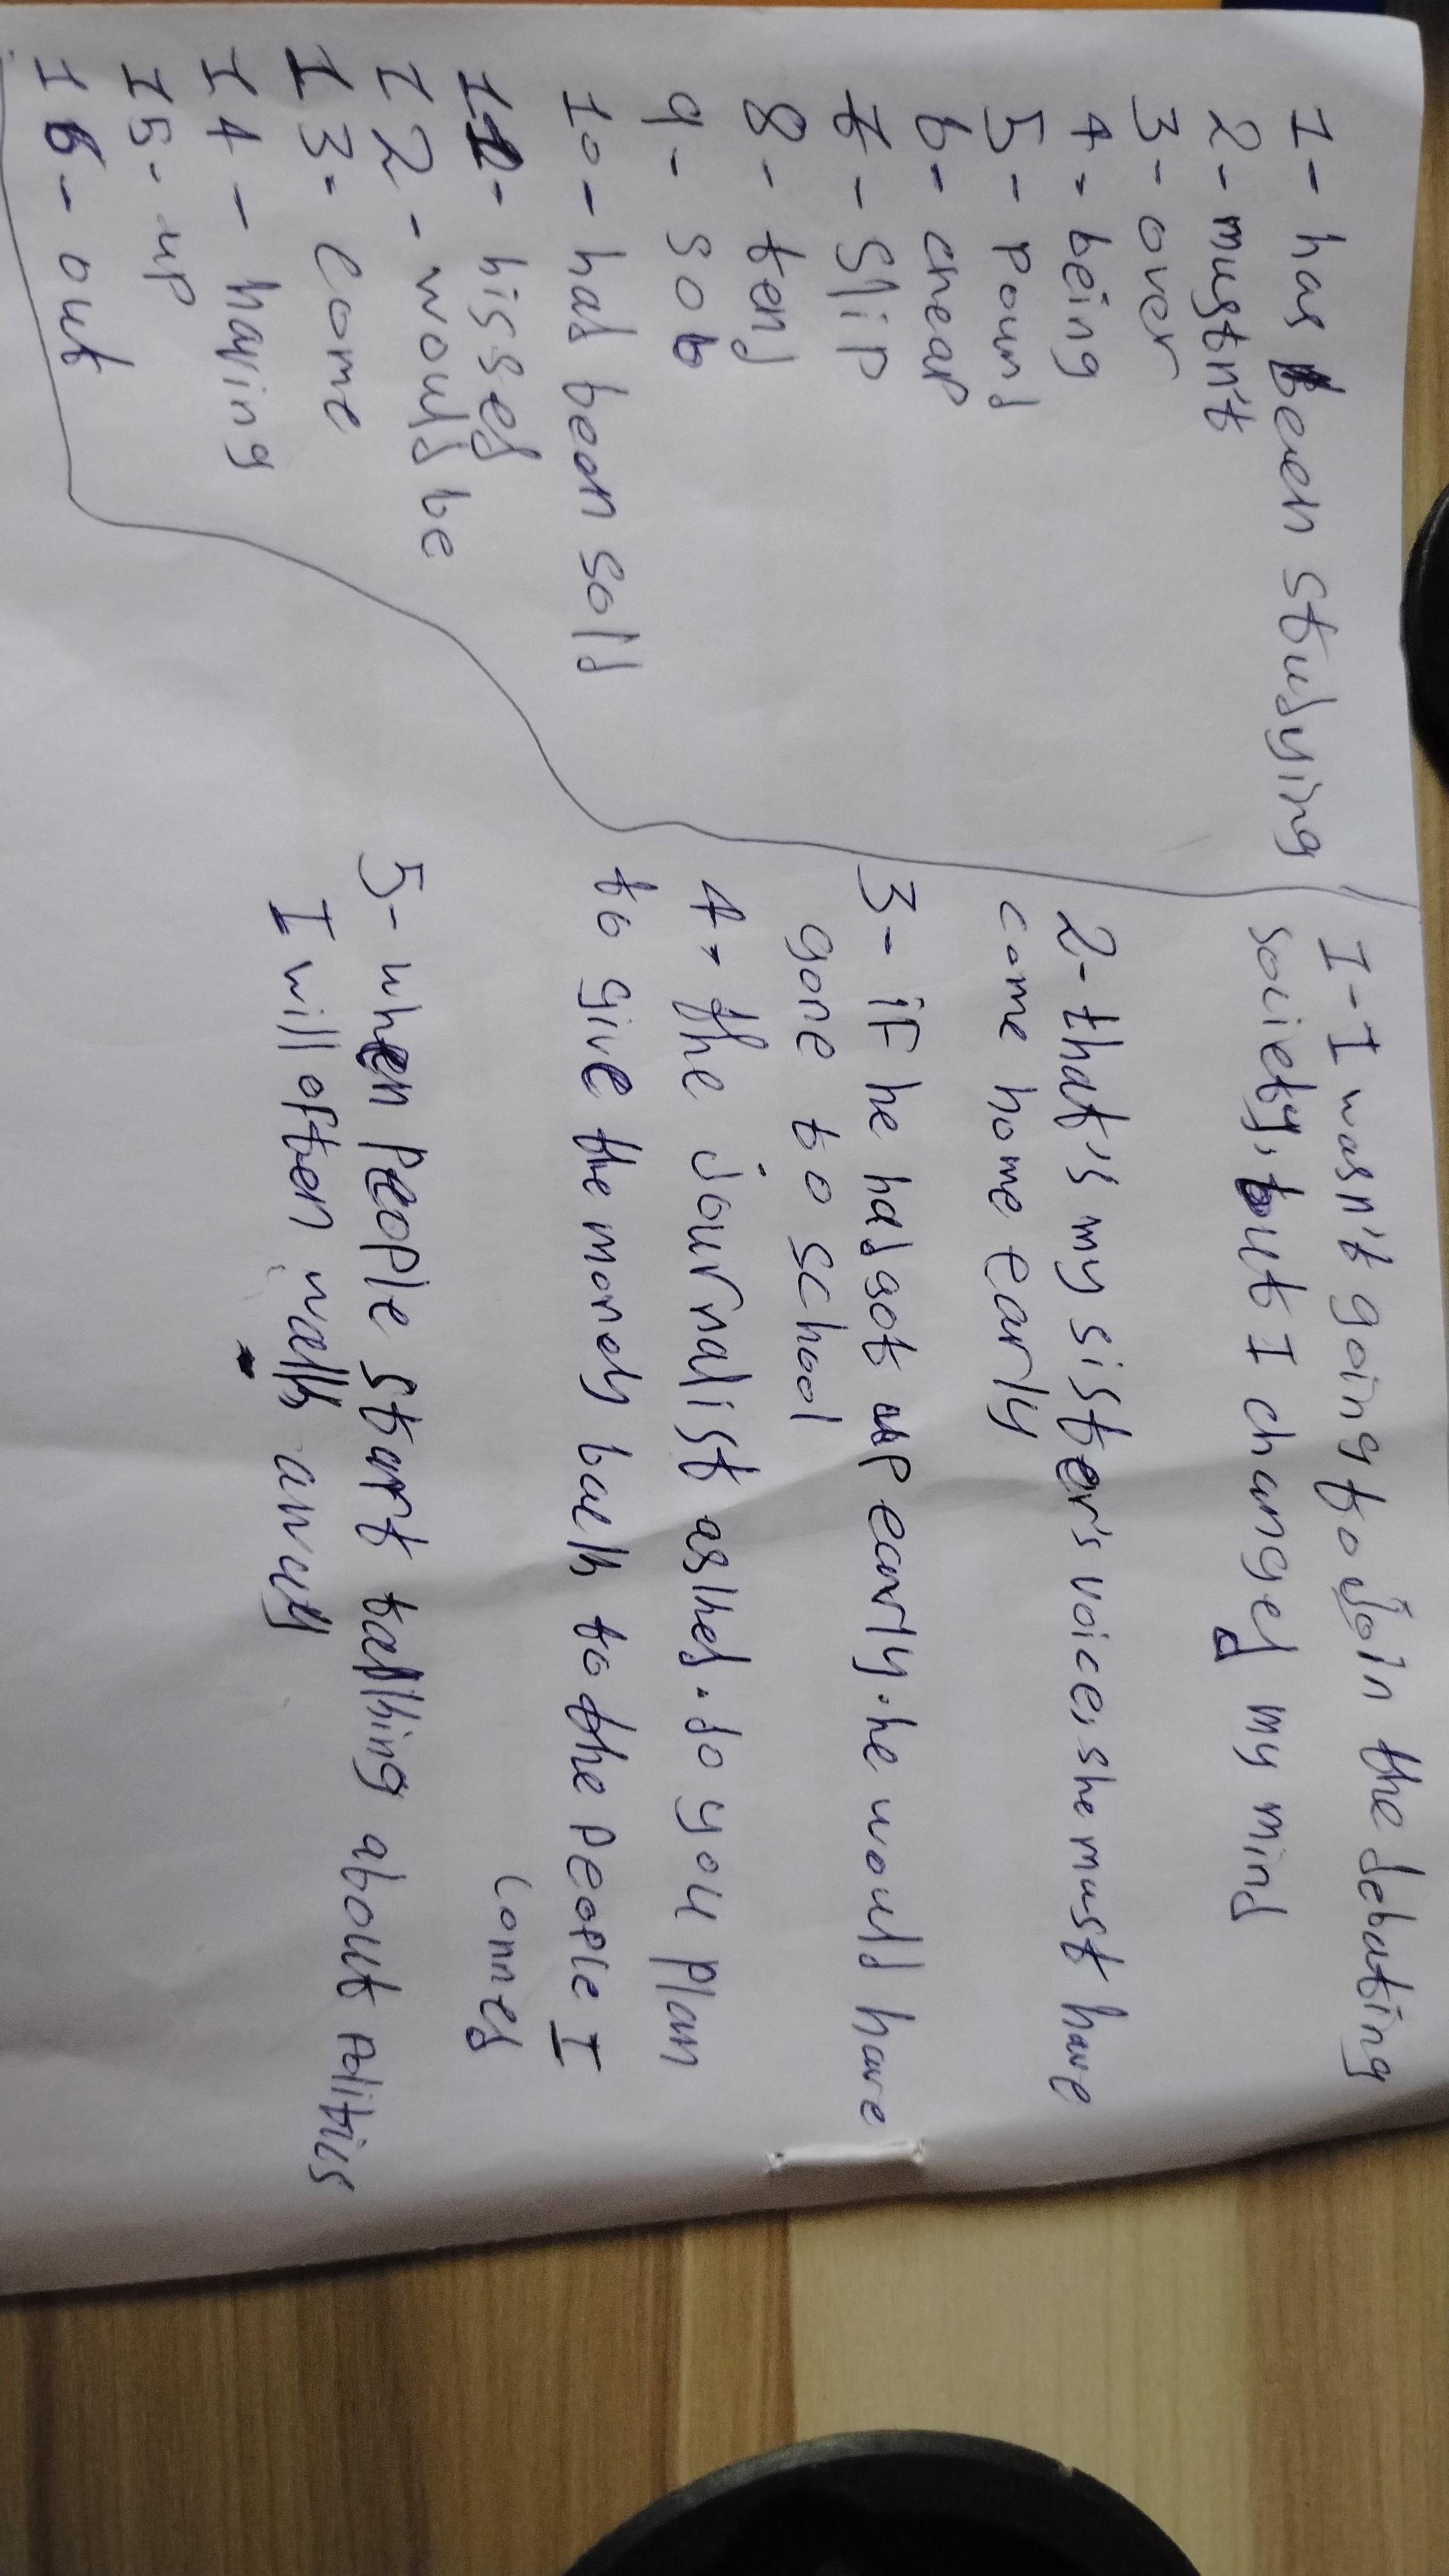 1- has been studying
2- mustn't
3- over
4- being
5- pound
6- cheap
7- slip
8- tend
9- sob
10- had been sold
11- hissed
12- would be
13- come
14- having
15- up
16- out
1- I wasn't going to join the debating
society, but I changed my mind
2- that's my sister's voice, she must have
come home early
3- if he had got up early. he would have
gone to school
4- the journalist asked. do you plan
to give the money back to the people I
conned
5- when people start talking about politics
I will often walk away